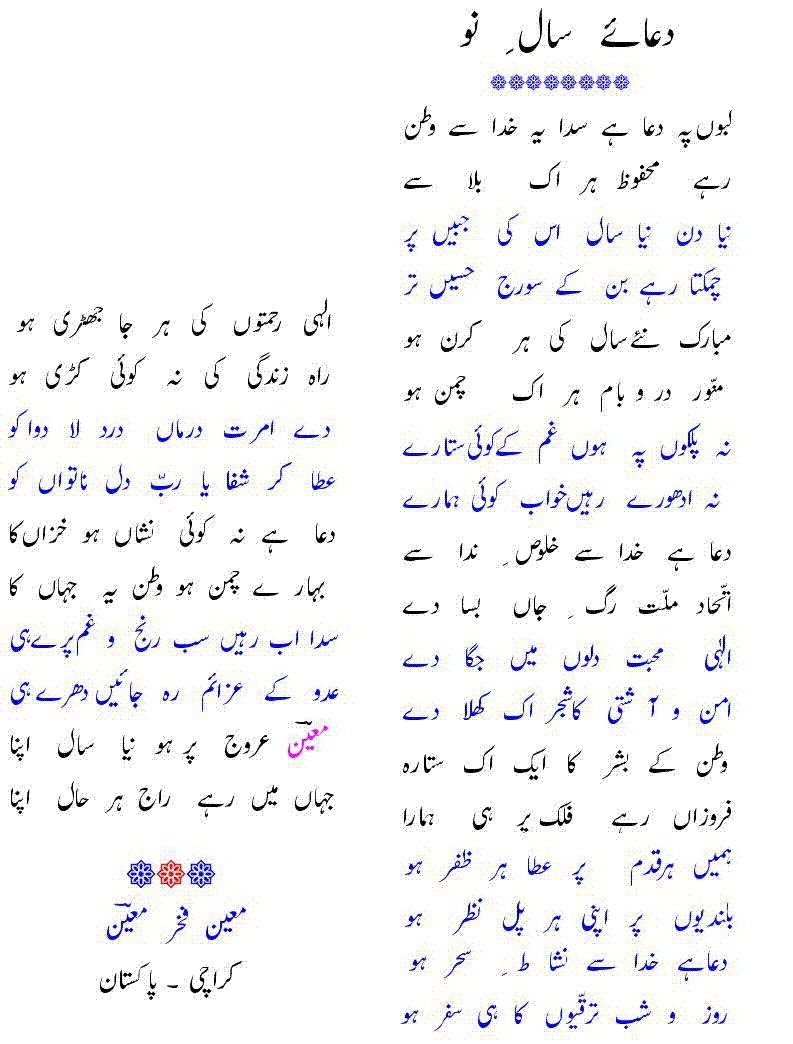 دعائے سالِ نو
لبوں پہ دعا ہے سدا یہ خدا سے وطن
رہے محفوظ ہر اک بلا سے
نیا دن نیا سال اس کی جبیں پر
چمکتا رہے بن کے سورج حسیں تر
مبارک نئے سال کی ہر کرن ہو
منّور در و بام ہر اک چمن ہو
نہ پلکوں پہ ہوں غم کے کوئی ستارے
نہ ادھورے رہیں خواب کوئی ہمارے
دعا ہے خدا سے خلوصِ ندا سے
اتّحاد ملّت رگِ جاں بسا دے
الٰہی محبت دلوں میں جگا دے
امن و آشتی کا شجر اک کھلا دے
وطن کے بشر کا ایک اک ستارہ
فروزاں رہے فلک پر ہی ہمارا
ہمیں ہر قدم پر عطا ہر ظفر ہو
بلندیوں پر اپنی ہر پل نظر ہو
دعا ہے خدا سے نشاطِ سحر ہو
روز و شب ترقیّوں کا ہی سفر ہو
الٰہی رحمتوں کی ہر جا جھڑی ہو
راہ زندگی کی نہ کوئی کڑی ہو
دے امرت درماں درد لا دوا کو
عطا کر شفا یا ربّ دل ناتواں کو
دعا ہے نہ کوئی نشاں ہو خزاں کا
بہارے چمن ہو وطن یہ جہاں کا
سدا اب رہیں سب رنج و غم پرے ہی
عدو کے عزائم رہ جائیں دھرے ہی
معینؔ عروج پر ہو نیا سال اپنا
جہاں میں رہے راج ہر حال اپنا
معین فخر معینؔ
کراچی ۔ پاکستان